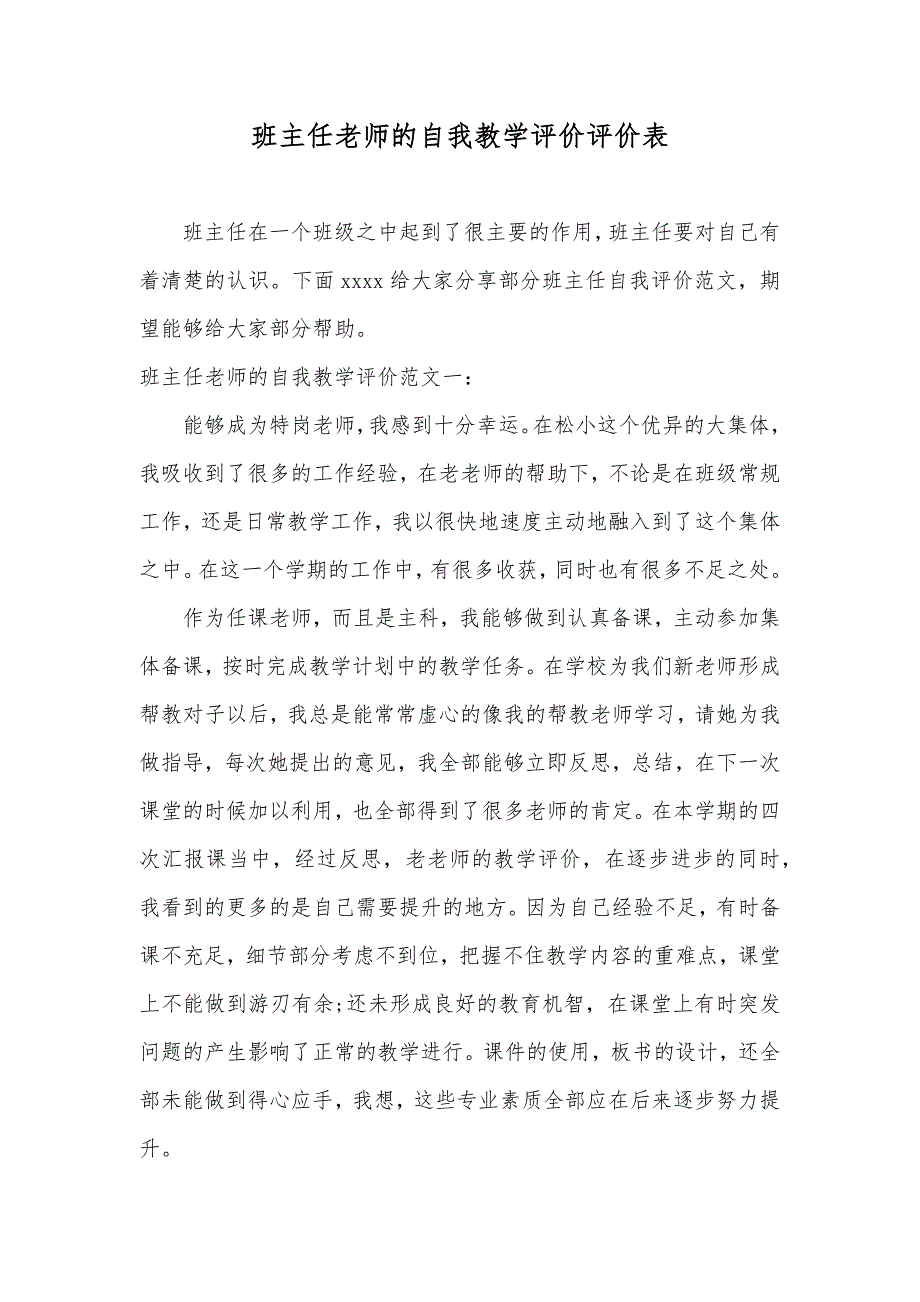 班主任老师的自我教学评价评价表
班主任在一个班级之中起到了很主要的作用,班主任要对自己有
着清楚的认识。下面 xxxx 给大家分享部分班主任自我评价范文，期
望能够给大家部分帮助。
班主任老师的自我教学评价范文一：
能够成为特岗老师,我感到十分幸运。在松小这个优异的大集体，
我吸收到了很多的工作经验，在老老师的帮助下，不论是在班级常规
工作，还是日常教学工作，我以很快地速度主动地融入到了这个集体
之中。在这一个学期的工作中，有很多收获，同时也有很多不足之处。
作为任课老师，而且是主科，我能够做到认真备课，主动参加集
体备课，按时完成教学计划中的教学任务。在学校为我们新老师形成
帮教对子以后，我总是能常常虚心的像我的帮教老师学习，请她为我
做指导，每次她提出的意见，我全部能够立即反思，总结，在下一次
课堂的时候加以利用，也全部得到了很多老师的肯定。在本学期的四
次汇报课当中，经过反思，老老师的教学评价，在逐步进步的同时，
我看到的更多的是自己需要提升的地方。因为自己经验不足，有时备
课不充足，细节部分考虑不到位，把握不住教学内容的重难点，课堂
上不能做到游刃有余;还未形成良好的教育机智，在课堂上有时突发
问题的产生影响了正常的教学进行。课件的使用，板书的设计，还全
部未能做到得心应手，我想，这些专业素质全部应在后来逐步努力提
升。